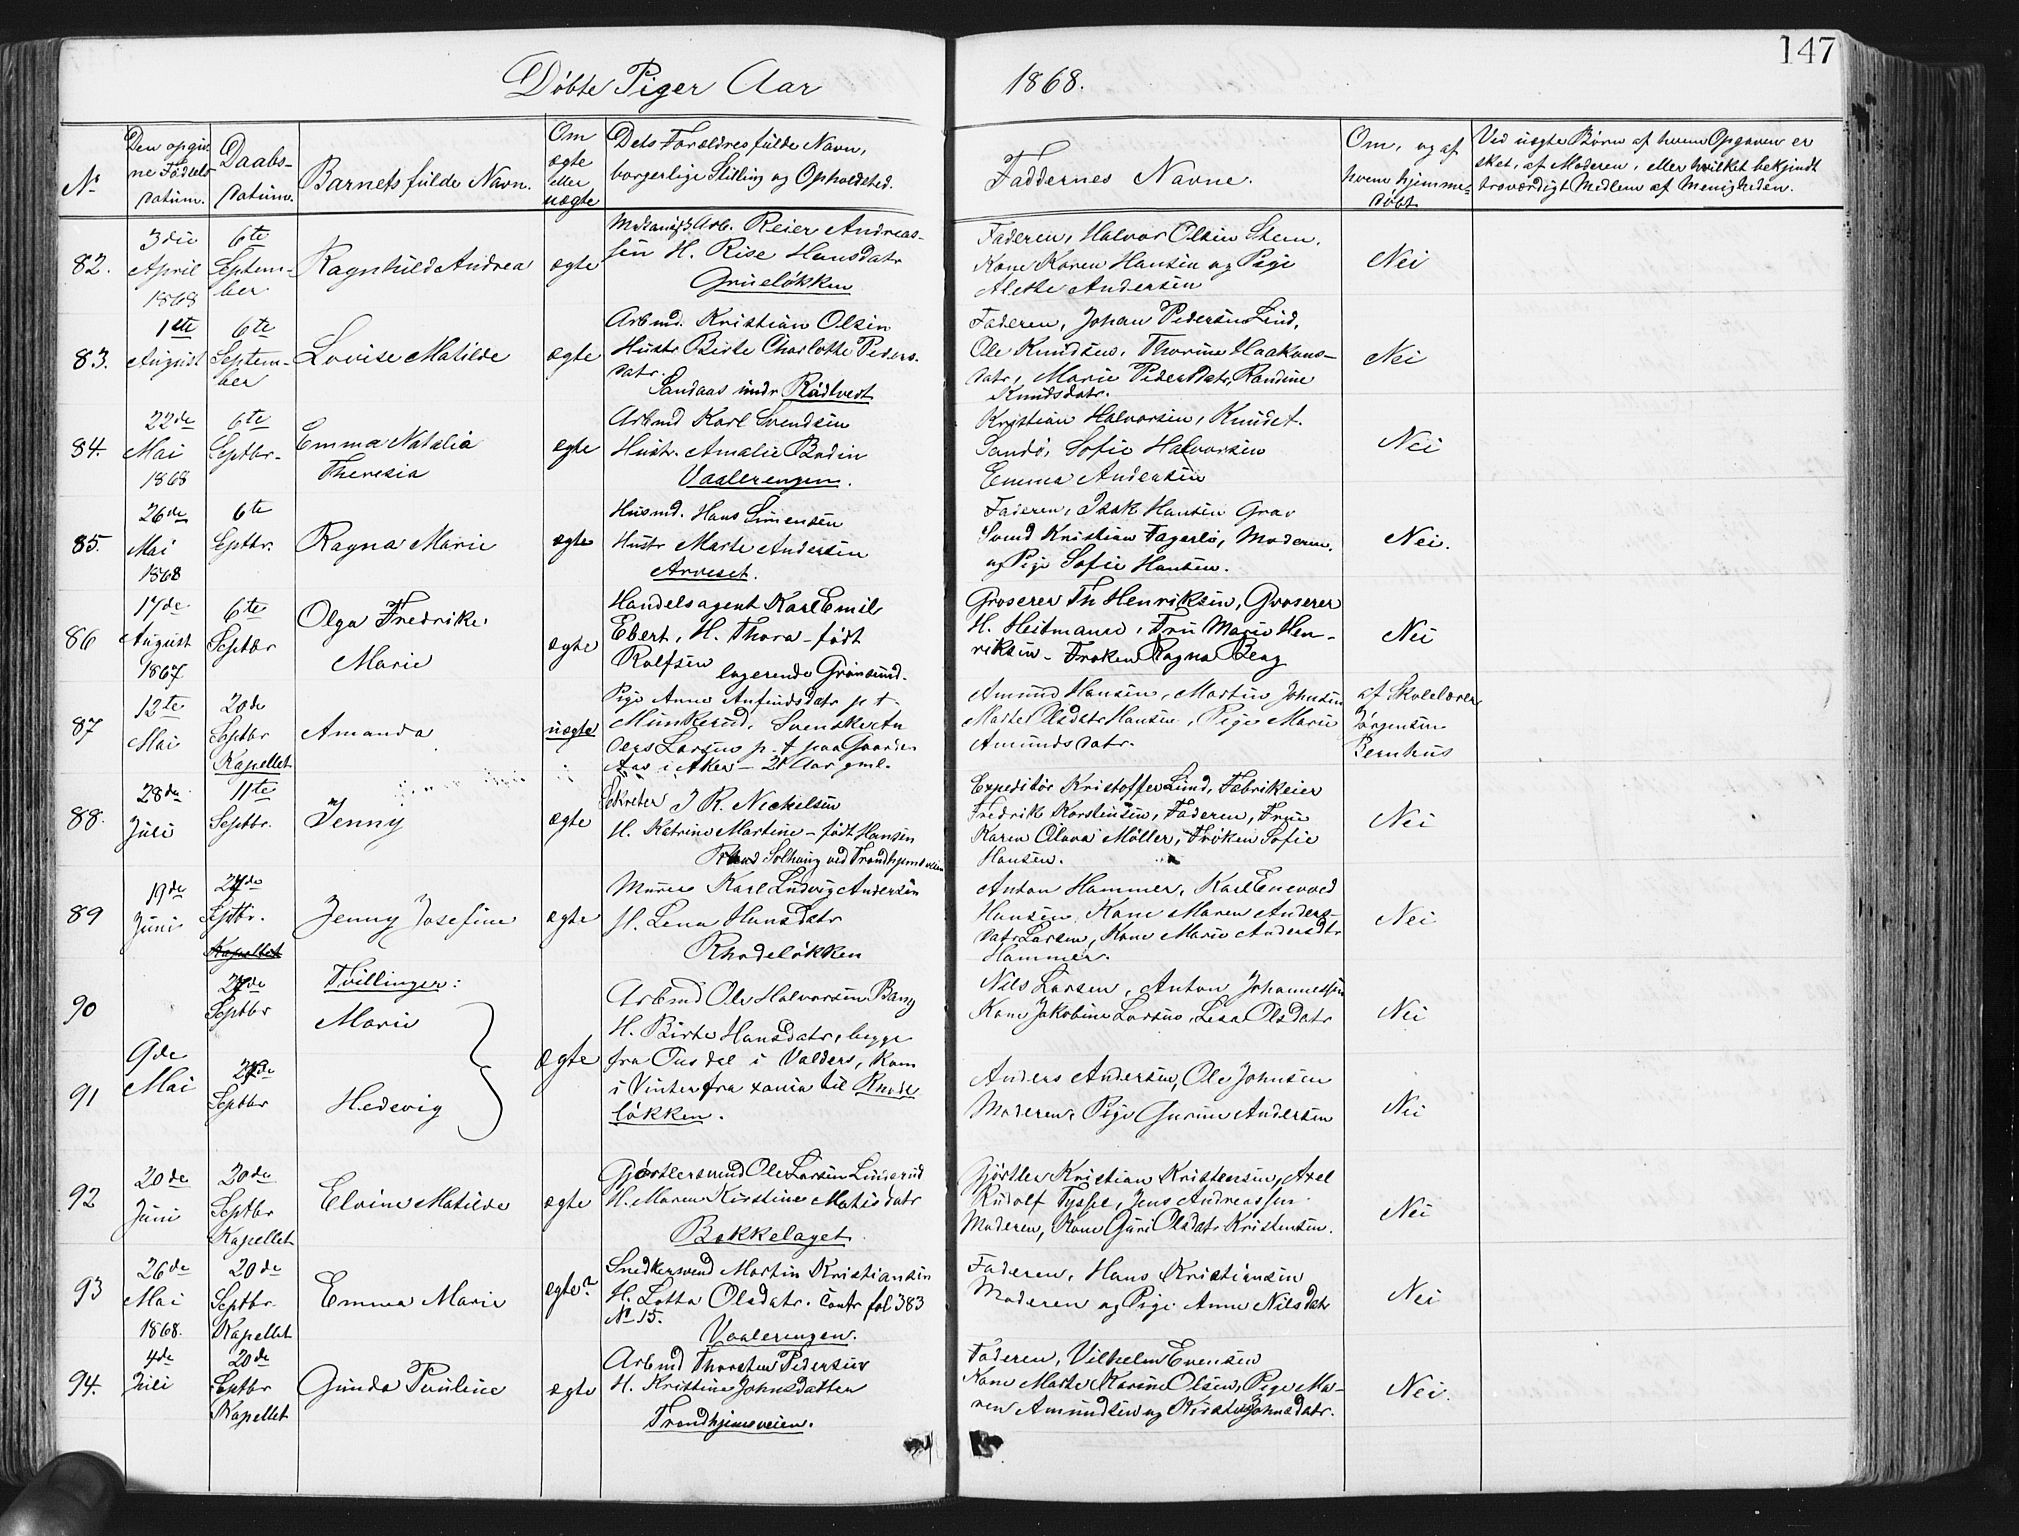 147
Døbte Piger Aar 1868.
No
Den opgivne Fødselsdatum.
Daabsdatum.
Barnets fulde Navn.
Om ægte eller uægte
Dets Forældres fulde Navn, borgerlige Stilling og Opholdsted.
Faddernes Navne.
Om, og af hvem hjemmedøbt
Ved uægte Børn af hvem Opgaven er sket, af Moderen, eller hvilket bekjendt troværdigt Medlem af Menigheden.
82.
3die April 1868
6te September
Ragnhild Andrea
ægte
Arb. Reier Andreas-
sen H. Rise Hansdatr
Grüneløkken
Faderen, Halvor Olsen Stem,
Kone Karen Hansen og Pige
Alethe Andersen
Nei
83.
1ste August
6te September
Lovise Matilde
ægte
Arbmd. Kristian Olsen
Hustr Birte Charlotte Peders-
datr.
Sandaas undr Rødtvedt
Faderen, Johan Pedersen Lind,
Ole Knudsen, Thorine Haakons-
datr, Marie Pedersdatr, Randine
Knudsdatr.
Nei
84.
22de Mai 1868
6te Septbr.
Emma Natalia
Theresia
ægte
Arbmd Karl Svendsen
Hustr. Amalie Bodin
Vaalerengen.
Kristian Halvorsen, Knud
Sandø, Sofie Halvorsen
Emma Andersen
Nei
85.
26de Mai 1868
6te Septbr.
Ragna Marie
ægte
Husmd. Hans Simensen
Hustr Marte Andersen
Arveset.
Faderen, Isak Hansen Grav
Svend Kristian Fagerlø, Moderen,
og Pige Sofie Hansen.
Nei.
86
17de August 1867
6te Septbr
Olga Fredrike
Marie
ægte
Handelsagent Karl Emil
Ebert, H. Thora - født
Rolfsen
logerende Grønsund.
Groserer Th Henriksen, Groserer
H. Heitmann, Fru Marie Hen-
riksen - Frøken Ragna Berg
Nei
87
12te Mai
20de Septbr Kapellet
Amanda
uægte
Pige Anne Anfindsdatr p t
Munkerud, Svenske An
ders Larsen p. t paa Gaarden
Aas i Aker - 21 Aar gml.
Amund Hansen, Martin Johnsen
Marte Olsdatr Hansen, Pige Marie
Amundsdatr.
af Skolelærer
Jørgensen
Bernhus
88.
28de Juli
11te Septbr.
Jenny
ægte
Sekretær J R. Nickelsen
H. Katrine Martine - født Hansen
Solhaug ved Trondhjemsveien
Expeditør Kristoffer Lund, Fabrikeier
Fredrik Karstensen, Faderen, Frue
Karen Olava Møller, Frøken Sofie
Hansen.
Nei
89
19de Juni
27de Septbr. Kapellet
Jenny Josefine
ægte
Murer Karl Ludvig Andersen
H. Lena Hansdatr
Rhodeløkken
Anton Hammer, Karl Enevold
Hansen, Kone Maren Anders-
datr Larsen, Kone Marie Andersdtr
Hammer.
Nei
90
9de Mai
27de Septbr
Tvillinger:
Marie
ægte
Arbmd Ole Halvorsen Bang
H. Birte Hansdatr, begge
fra Ousdal i Valders, kom
i Vinter fra Xania til Rhode
løkken.
Nils Larsen, Anton Johannessen
Kone Jakobine Larsen, Lesa Olsdatr
Nei
91
27de Septbr
Hedevig
Anders Andersen, Ole Johnsen
Moderen, Pige Gurine Andersen
Nei
92
20de Juni
20de Septbr Kapellet
Elvine Matilde
ægte
Gjørtlersvend Ole Larsen Linderud
H. Maren Kirstine Matisdatr
Bækkelaget
Gjørtler Kristian Kristensen, Axel
Rudolf Tysse, Jens Andreassen
Moderen, Kone Guri Olsdatr Kristensen.
Nei
93
26de Mai 1868.
20de Septbr. Kapellet
Emma Marie
ægte?
Snedkersvend Martin Kristiansen
H. Lotta Olsdatr. Confr fol 383
No 15.
Vaalerengen.
Faderen, Hans Kristiansen
Moderen og Pige Anne Nilsdatr
Nei
94.
4de Juli
20de Septbr Kapellet
Gunda Pauline
ægte
Arbmd Thorsten Pedersen
H. Kristine Johnsdatter
Trondhjemsveien.
Faderen, Vilhelm Evensen
Kone Marte Karine Olsen, Pige Ma-
ren Amundsen og Kirstine Johnsdatr.
Nei.